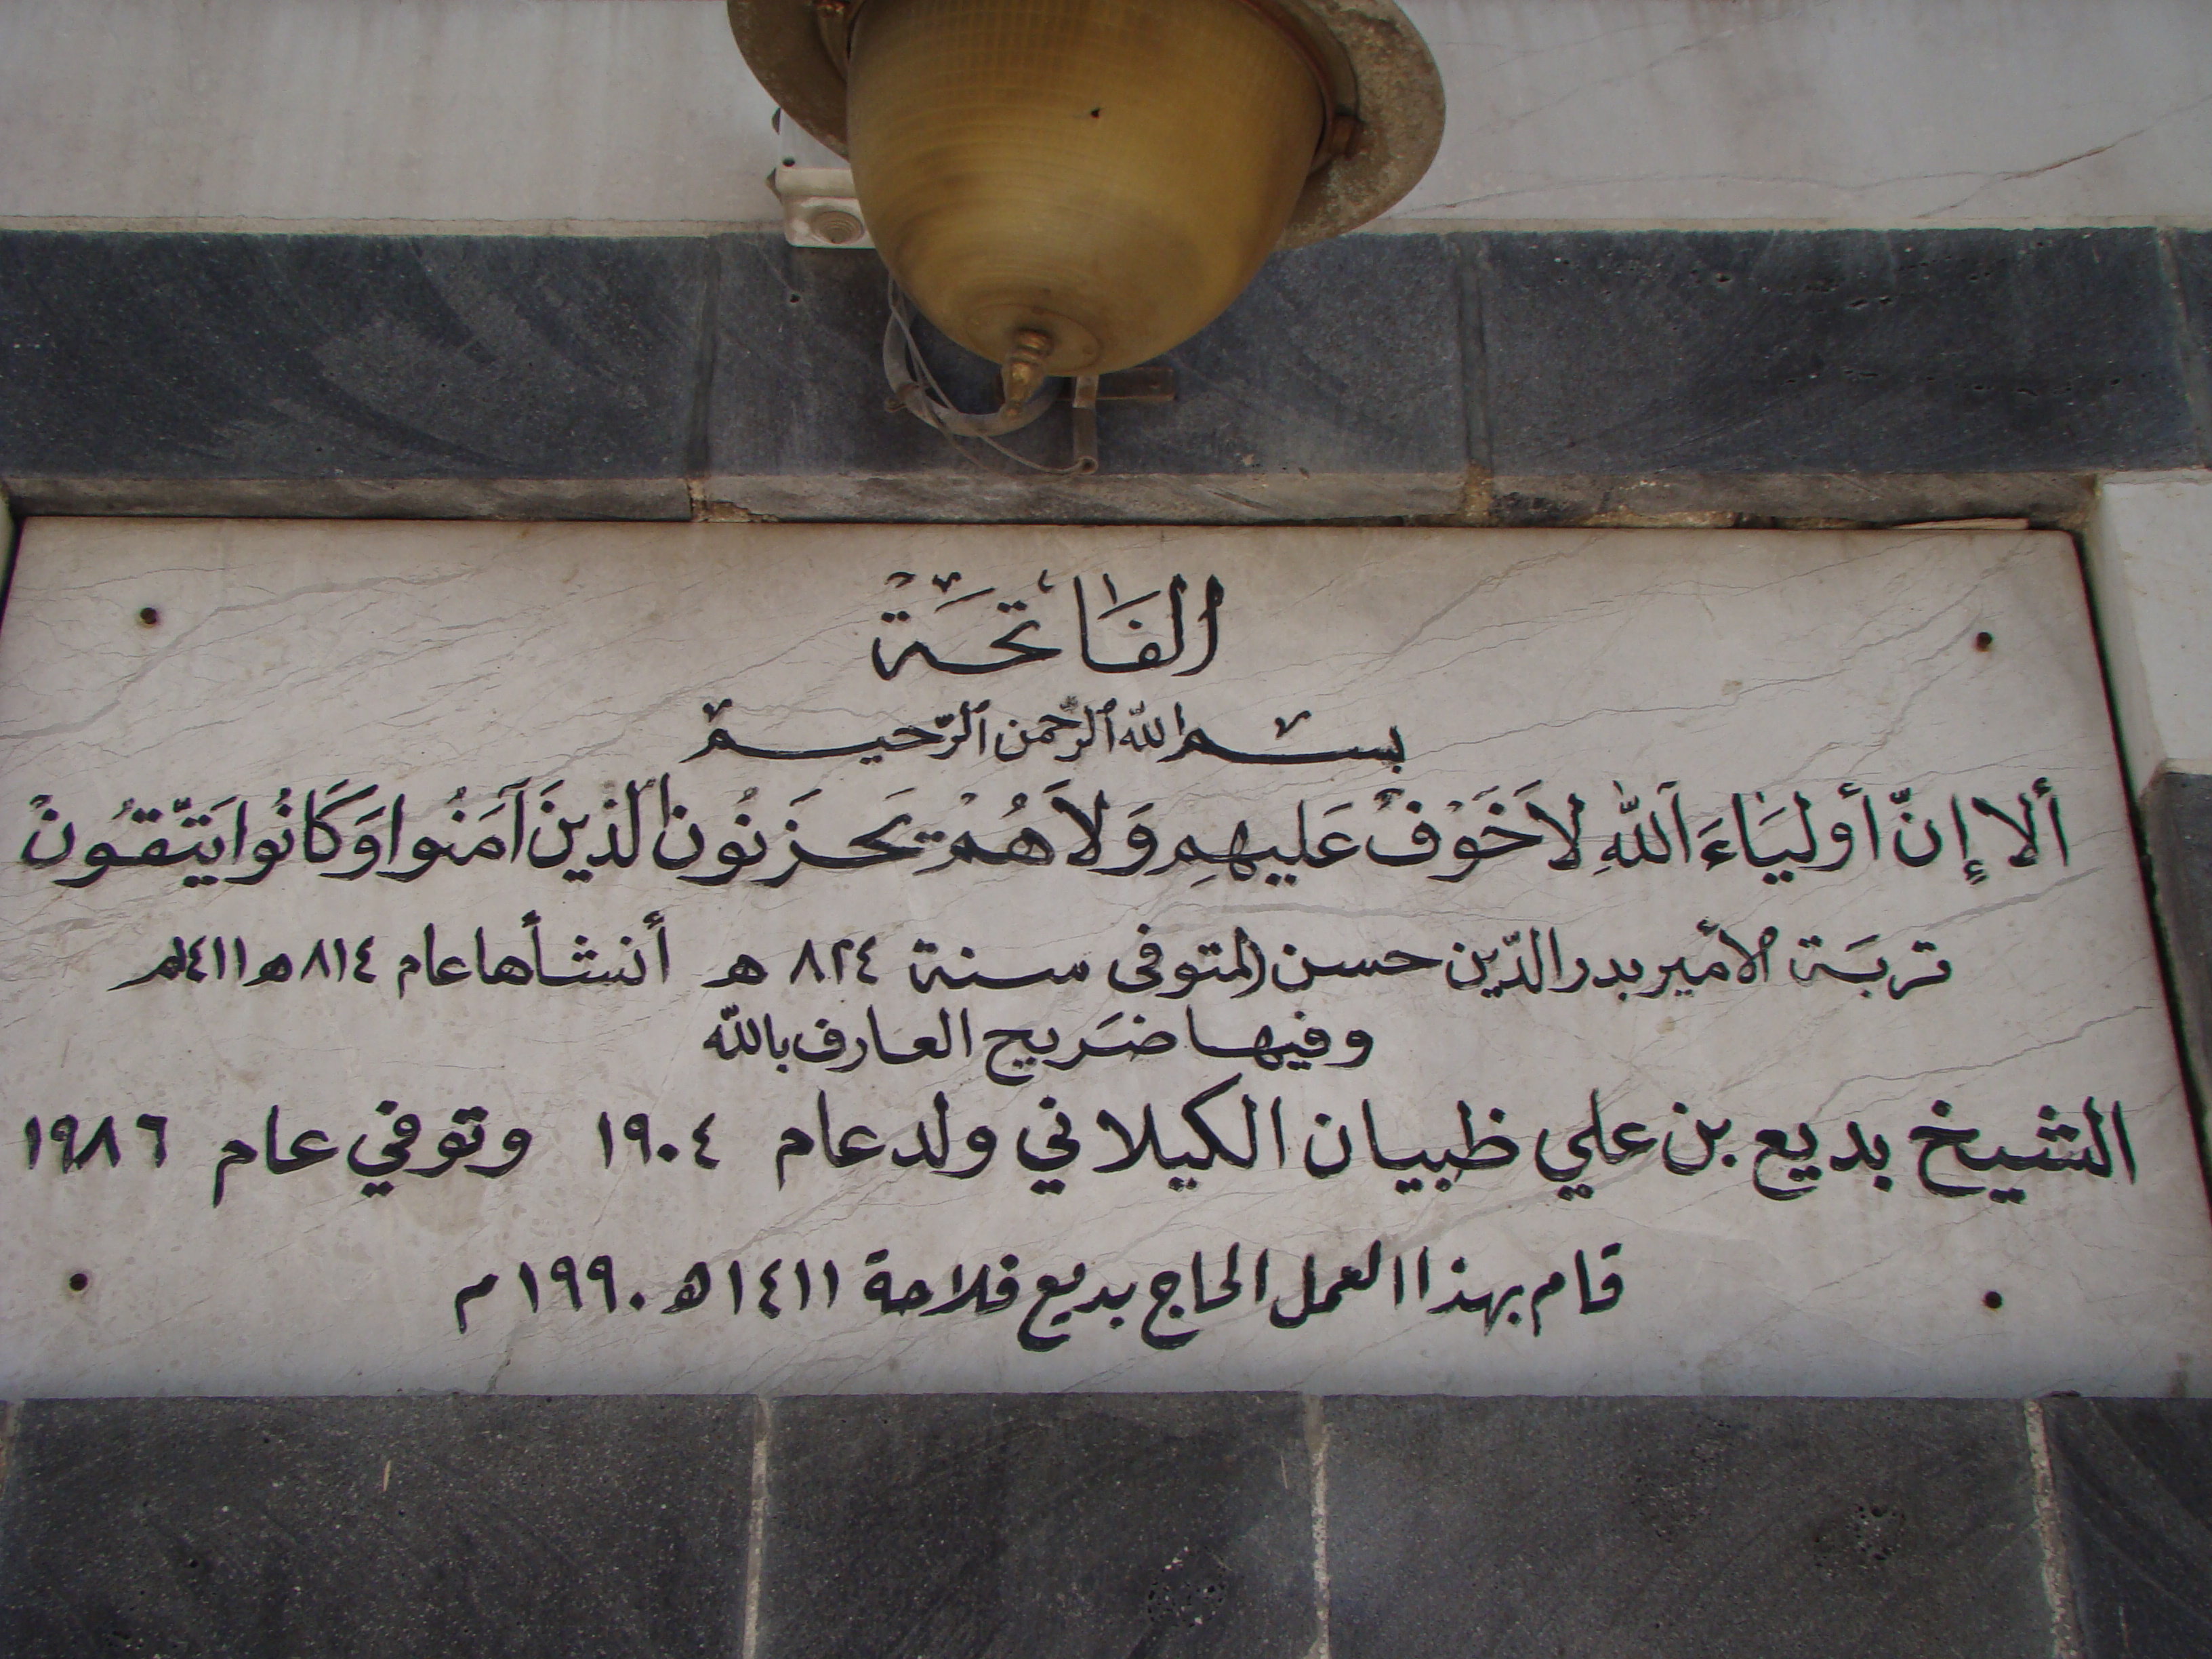 الفَاتِحَة
بسم الله الرّحمن الرّحيم
ألا إنّ أوليَاءَ اللهِ لاَ خَوْفٌ عَليهِم وَلاَ هُمْ يَحزَنُون الّذينَ آمَنُوا وَكَانُوا يَتّقُونْ
تربَة الأمير بدر الدّين حسن المتوفى سنة ٨٢٤ هـ أنشأها عام ٨١٤ هـ ١٤١١م
وفيها ضَريح العارف بالله
الشيخ بديع بن علي ظبيان الكيلاني ولد عام ١٩٠٤ وتوفي عام ١٩٨٦
قام بهذا العمل الحاج بديع فلاحة ١٤١١هـ ١٩٩٠م